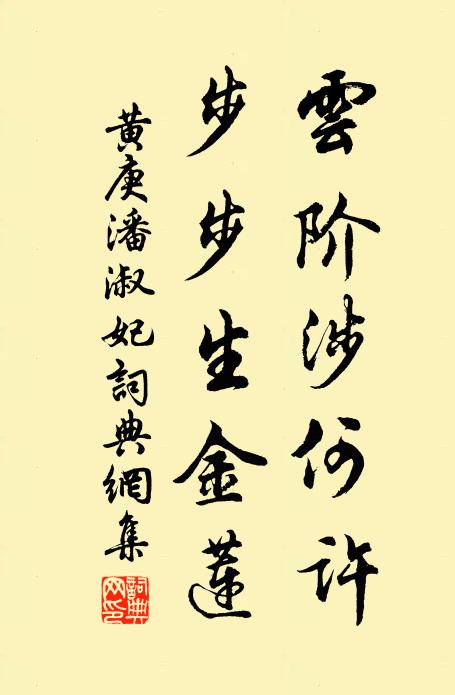 雲阶涉何许
步步生金蓮
黄庚潘淑妃詞典網集
詞典网印